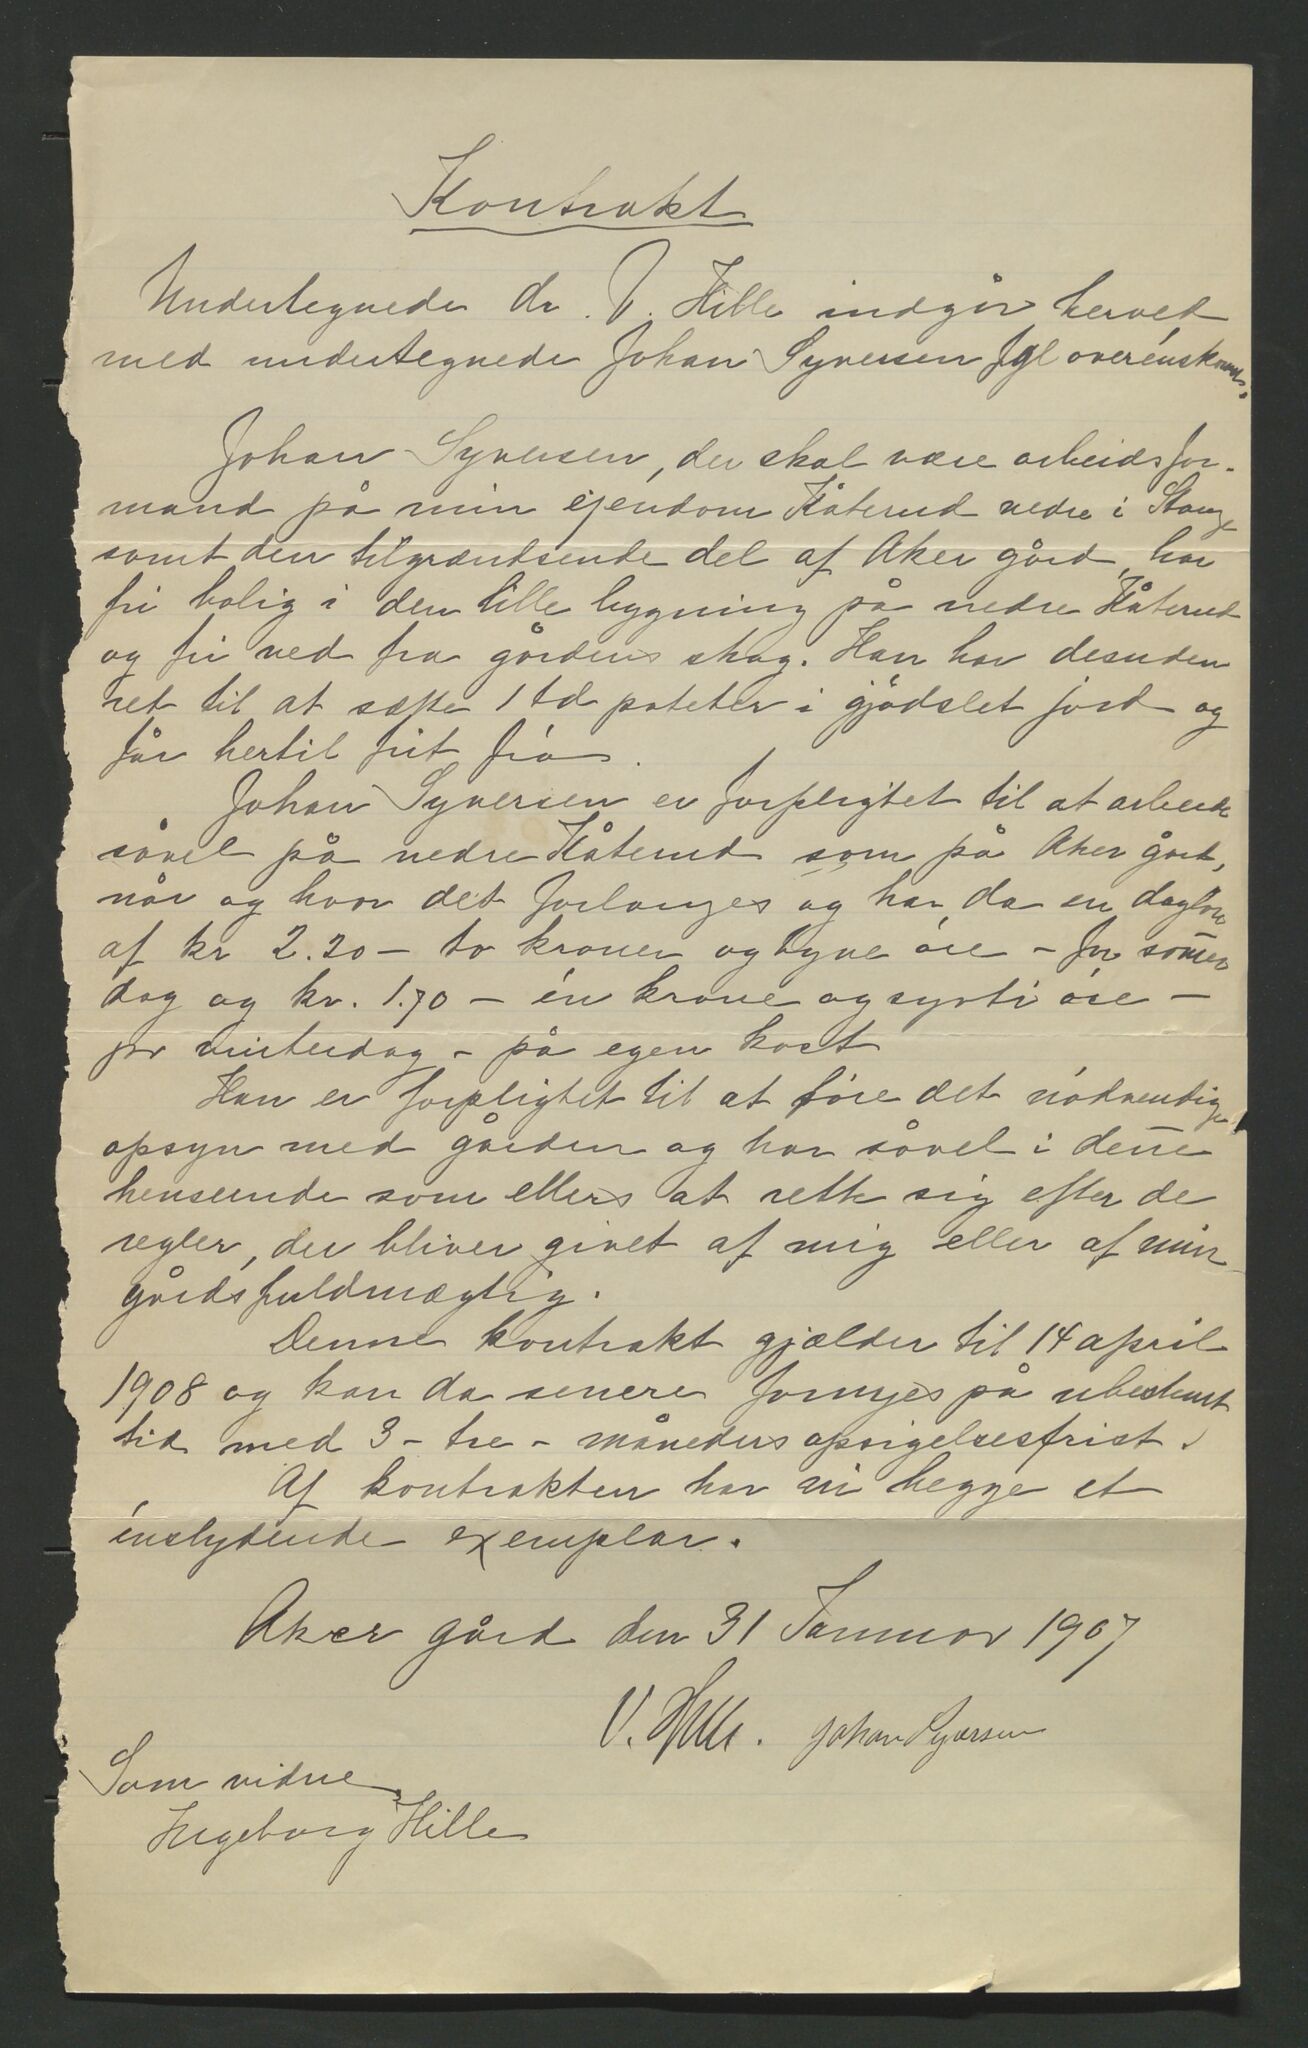 Kontrakt
Undertegnede dr. V. Hille indgår herved
med undertegnede Johan Syversen fgl overénskomst.
Johan Syversen, der skal være arbeidsfor-
mand på min ejendom Kåterud nedre i Stange
samt den tilgrændsende del af Aker gård, har
fri bolig i den lille bygning på nedre Kåterud
og fri ved fra gårdens skog. Han har desuden
ret til at sætte 1 td poteter i gjødslet jord og
får hertil frit frø.
Johan Syversen er forpligtet til at arbeide
såvel på nedre Kåterud som på Aker gård,
når og hvor det forlanges og har da en dagløn
af kr 2.20 – to kroner og tyve øre – for som̅er
dag og kr. 1.70 – én krone og sytti øre –
pr vinterdag – på egen kost
Han er forpligtet til at føre det nødvendige
opsyn med gården og har såvel i den̅e
henseende som ellers at rette sig efter de
regler, der bliver givet af mig eller af min
gårdsfuldmægtig.
Denne kontrakt gjælder til 14 april
1908 og kan da senere fornyes på ubestemt
tid med 3 – tre – måneders opsigelsesfrist.
Af kontrakten har vi begge et
énslydende exemplar.
Aker gård den 31 Januar 1907
V. Hille. Johan Syversen
Som vidne
Ingeborg Hille